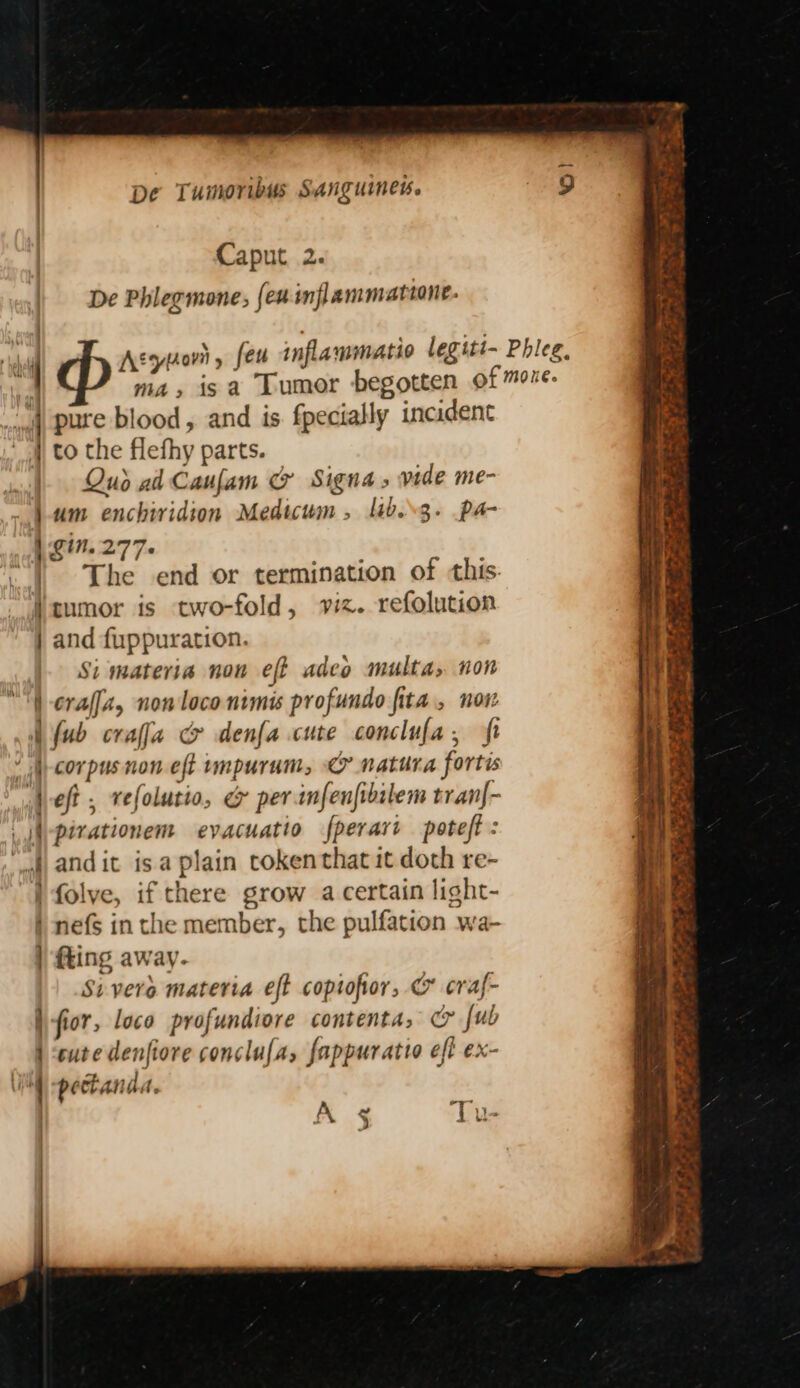 De Tumoribus Sanguineis. 9
Caput 2.
De Phlegmone, ſeu inflammatione.
Φλεγμονὴ, ſeu inflammatio legiti- Phleg.
ma, is a Tumor begotten of mone.
pure blood, and is ſpecially incident
to the fleſhy parts.
Quò ad Cauſam & Signa, vide me-
um enchiridion Medicum, lib. 3. pa-
gin. 277.
The end or termination of this
tumor is two-fold, viz. reſolution
and ſuppuration.
Si materia non eſt adeò multa, non
craſſa, non loco nimis profundo ſita, non
ſub craſſa & denſa cute concluſa, ſi
corpus non eſt impurum, & natura fortis
eſt, reſolutio, & per inſenſibilem tranſ-
pirationem evacuatio ſperari poteſt:
and it is a plain token that it doth re-
ſolve, if there grow a certain light-
neſs in the member, the pulſation wa-
ſting away.
Si verò materia eſt copioſior, & craſ-
ſior, loco profundiore contenta, & ſub
cute denſiore concluſa, ſappuratio eſt ex-
pectanda.
A 5 Tu-